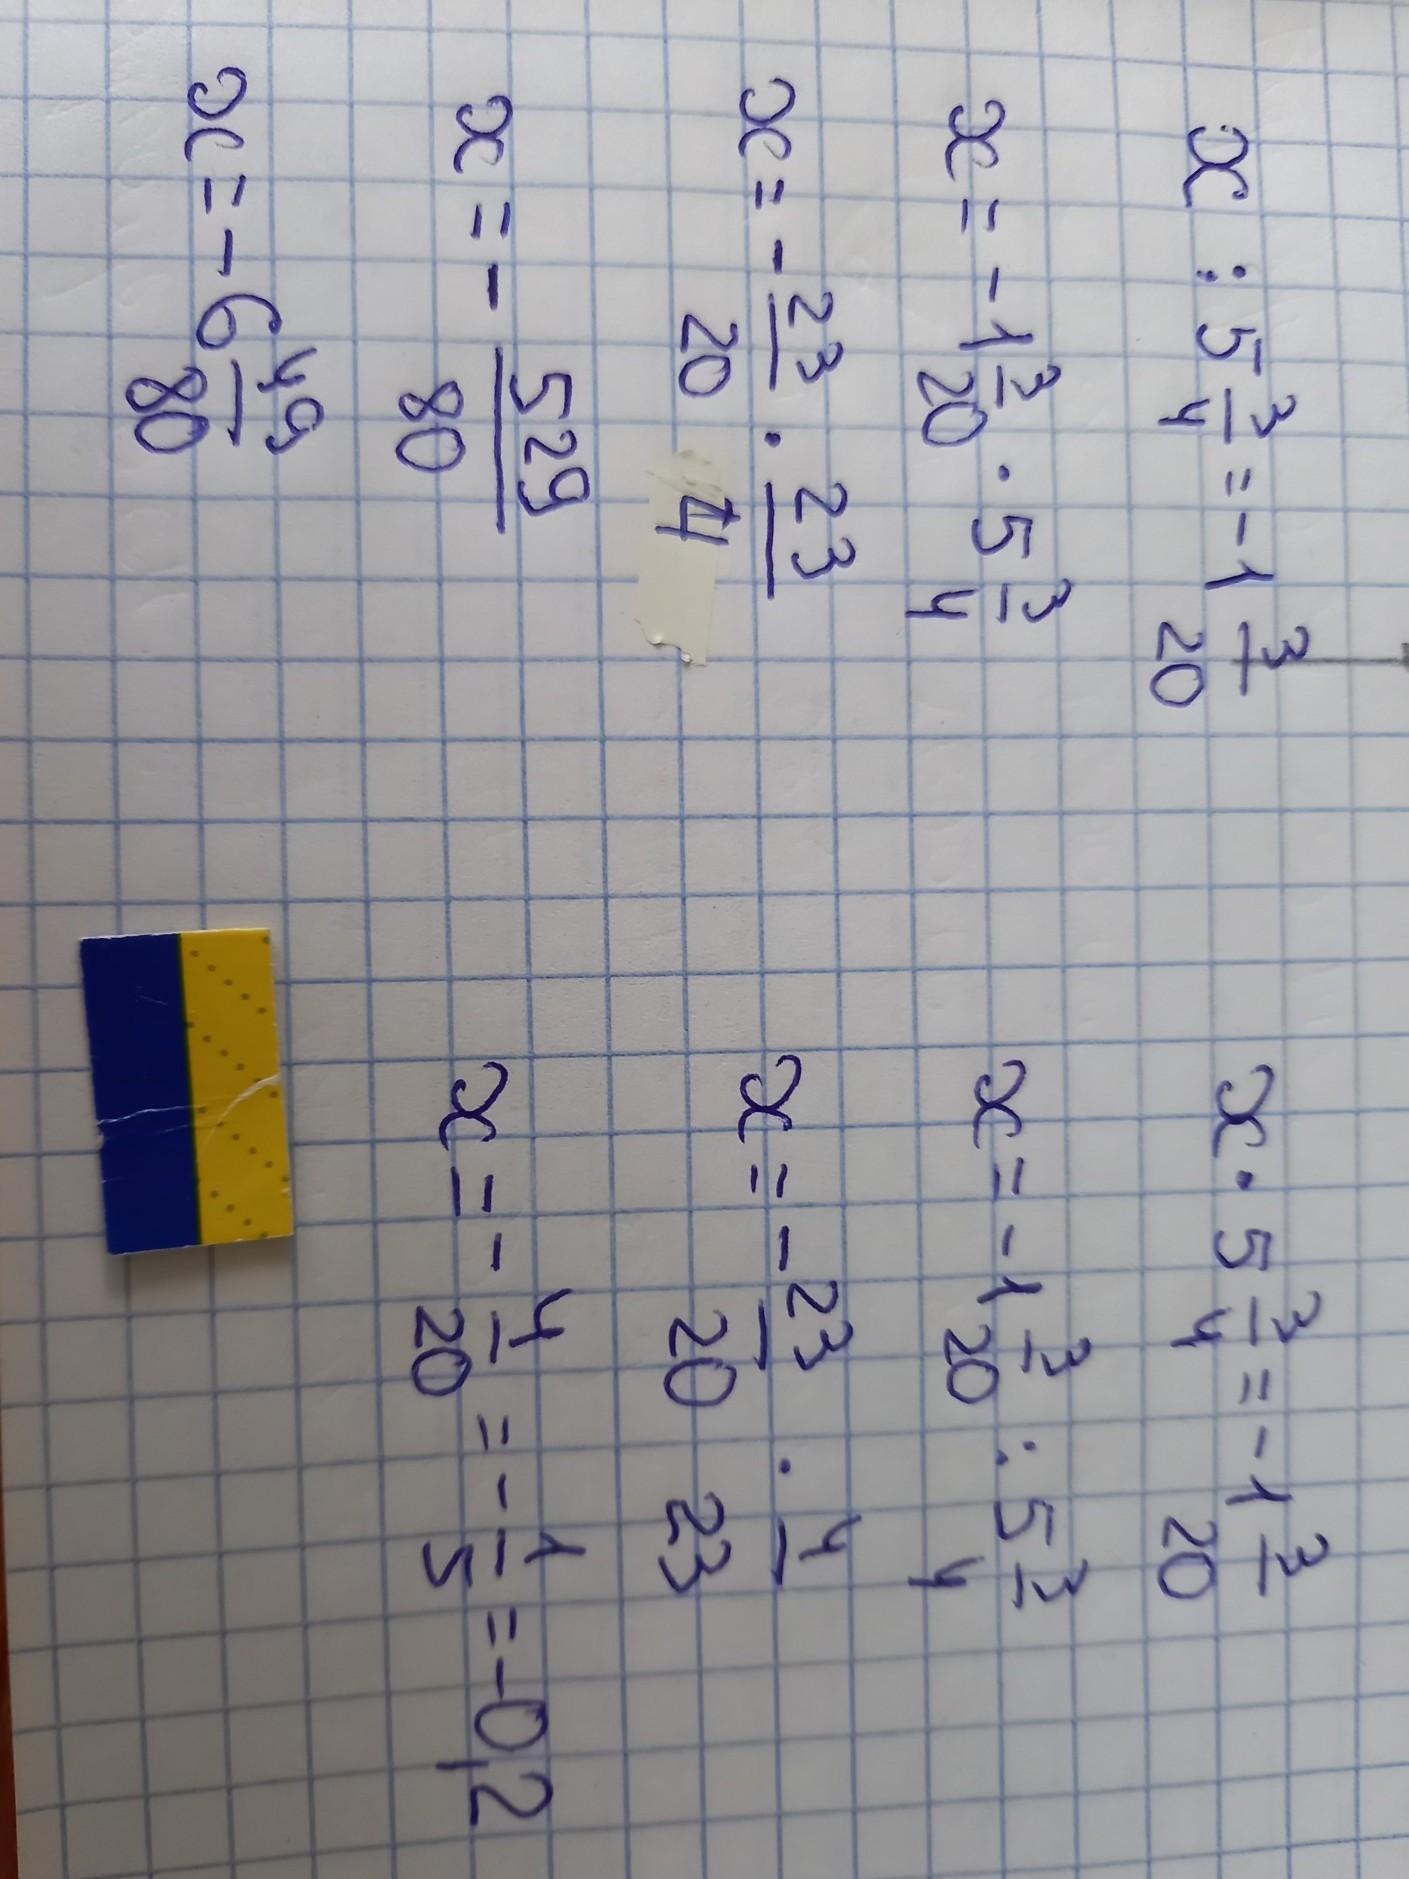 x : 5 3/4 = -1 3/20
x = -1 3/20 · 5 3/4
x = - 23/20 · 23/4
x = - 529/80
x = -6 49/80
x · 5 3/4 = -1 3/20
x = -1 3/20 : 5 3/4
x = - 23/20 · 4/23
x = - 4/20 = - 1/5 = -0,2